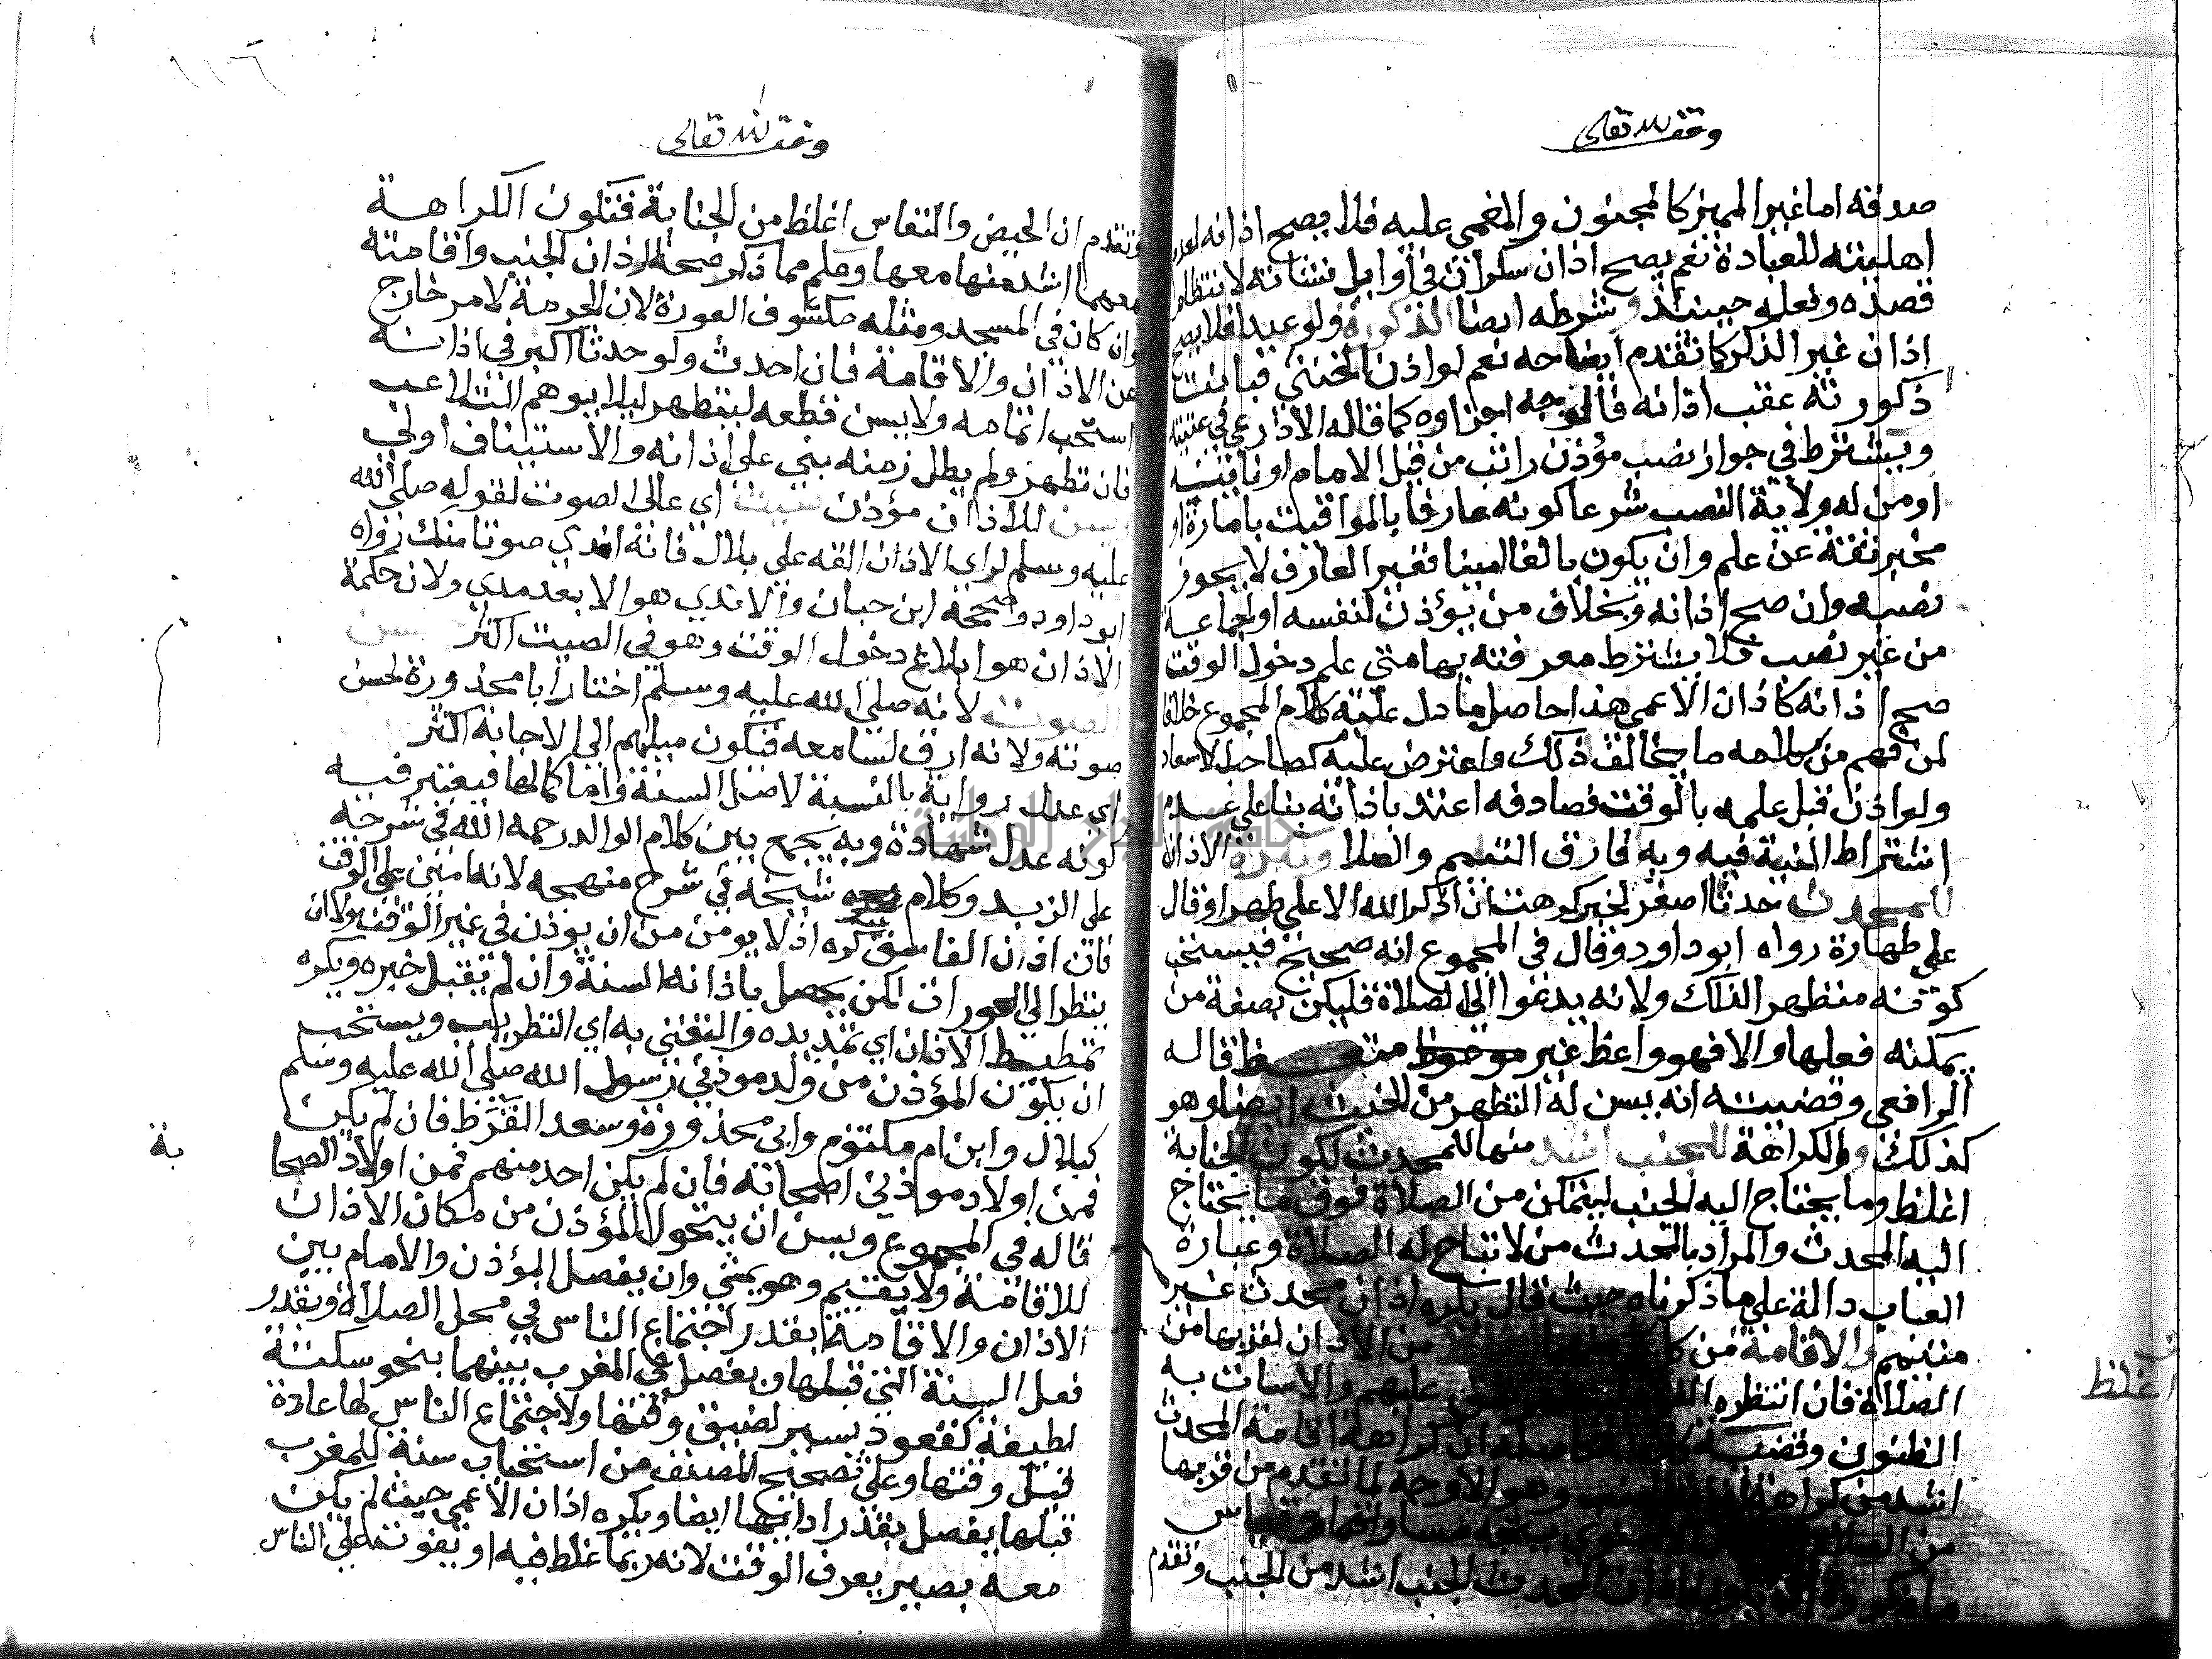 وقف لله تعالى
صدقه اما غير المميز كالمجنون والمغمى عليه فلا يصح اذانه لعدم
اهليته للعبادة نعم يصح اذان سكران في اوايل نشاته لانتظام
قصده وفعله حينئذ وشرطه ايضا الذكورة ولو عبدا فلا يصح
اذان غير الذكر كما تقدم ايضاحه نعم لو اذن الخنثي فبانت
ذكورته عقب اذانه فالوجه اجزاوه كما قاله الاذرعي في غنيته
ويشترط في جواز نصب مؤذن راتب من قبل الامام او نايبه
او من له ولاية النصب شرعا كونه عارفا بالمواقيت بامارة او
مخبر ثقة عن علم وان يكون بالغا امينا فغير العارف لا يجوز
نصبه وان صح اذانه وبخلاف من يؤذن لنفسه او لجماعة
من غير نصب فلا يشترط معرفته بها متى علم دخول الوقت
صح اذانه كاذان الاعمى هذا حاصل ما دل عليه كلام المجموع خلافا
لمن فهم من كلامه ما يخالف ذلك واعترض عليه كصاحب الاسعاد
ولو اذن قبل علمه بالوقت فصادفه اعتد باذانه بنا على عدم
اشتراط النية فيه وبه فارق التيمم والصلا ويكره الاذان
للمحدث حدثا اصغر لخبر كرهت ان اذكر الله الا على طهر او قال
على طهارة رواه ابو داود وقال في المجموع انه صحيح فيستحب
كونه متطهر الذلك ولانه يدعوا الى الصلاة فليكن بصفة من
يمكنه فعلها والا فهو واعظ غير متعظ قاله
الرافعي وقضيته انه يسن له التطهر من الخبث ايضا وهو
كذلك والكراهة للجنب اشد منها للمحدث لكون الجنابة
اغلظ وما يحتاج اليه الجنب ليتمكن من الصلاة فوق ما يحتاج
اليه المحدث والمراد بالمحدث من لا تباح له الصلاة وعبارة
العباب دالة على ما ذكرناه حيث قال يكره اذان محدث غير
متيمم والاقامة من من الاذان لقربها من
الصلاة فان انتظره عليهم والاسات به
الظنون وقضية ان كراهة اقامة المحدث
اشد من كراهة وهو الاوجه لما تقدم من قربها
من الصلاة
الجنب اشد من الجنب وتقدم
اغلظ
وقف لله تعالى
وتقدم ان الحيض والنفاس اغلظ من الجنابة فتكون الكراهة
معهما اشد منها معها وعلم مما ذكر صحة اذان الجنب واقامته
وان كان في المسجد ومثله مكشوف العورة لان الحرمة لامر خارج
عن الاذان والاقامة فان احدث ولو حدثا اكبر في اذانه
استحب اتمامه ولا يسن قطعه ليتطهر ليلا يوهم التلاعب
فان تطهر ولم يطل زمنه بني على اذانه والاستيناف اولى
ويسن للاذان مؤذن صيت اي عالى الصوت لقوله صلى الله
عليه وسلم لراى الاذان القه على بلال فانه اندي صوتا منك رواه
ابو داود وصححه ابن حبان والاندي هو الابعد مدي ولان حكمة
الاذان هو ابلاغ دخول الوقت وهو في الصيت اكثر حسن
الصوت لانه صلى الله عليه وسلم اختار ابا محذورة لحسن
صوته ولانه ارق لسامعه فتكون ميلهم الى الاجابة اكثر
اي عدل رواية بالنسبة لاصل السنة واما كمالها فيعتبر فيه
كونه عدل شهادة وبه يجمع بين كلام الوالد رحمه الله في شرحه
على الزبد وكلام شيخه في شرح منهجه لانه امين على الوقت
فان اذن الفاسق كره اذ لا يومن من ان يوذن في غير الوقت ولا ان
ينظر الى العورات لكن يحصل باذانه السنة وان لم تقبل خبره ويكره
تمطيط الاذان اي تمديده والتغني به اي التطريب ويستحب
ان يكون المؤذن من ولد موذني رسول الله صلى الله عليه وسلم
كبلال وابن ام مكتوم وابى محذورة وسعد القرظ فان لم يكن
فمن اولاد موذني اصحابه فان لم يكن احد منهم فمن اولاد الصحا
بة
قاله في المجموع ويسن ان يتحول المؤذن من مكان الاذان
للاقامة ولا يقيم وهو يمشي وان يفصل المؤذن والامام بين
الاذان والاقامة بقدر اجتماع الناس في محل الصلاة وبقدر
فعل السنة التي قبلها ويفصل في المغرب بينهما بنحو سكتة
لطيفة كقعود يسير لضيق وقتها ولاجتماع الناس لها عادة
قبل وقتها وعلى تصحيح المصنف من استحباب سنة للمغرب
قبلها يفصل بقدر ادايها ايضا ويكره اذان الاعمى حيث لم يكن
معه بصير يعرف الوقت لانه ربما غلط فيه او يفوته على الناس